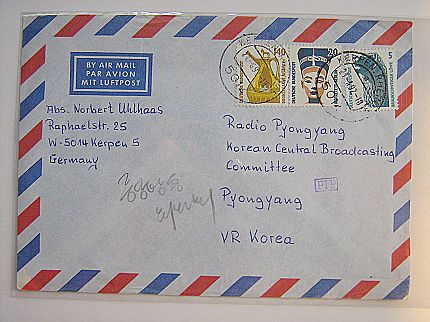 BY AIR MAIL
PAR AVION
MIT LUFTPOST
140
20
5
KERPEN
Abs. Norbert Uhlhaas
Raphaelstr. 25
W-5014 Kerpen 5
Germany
Radio Pyongyang
Korean Central Broadcasting
Committee
Pyongyang
VR Korea